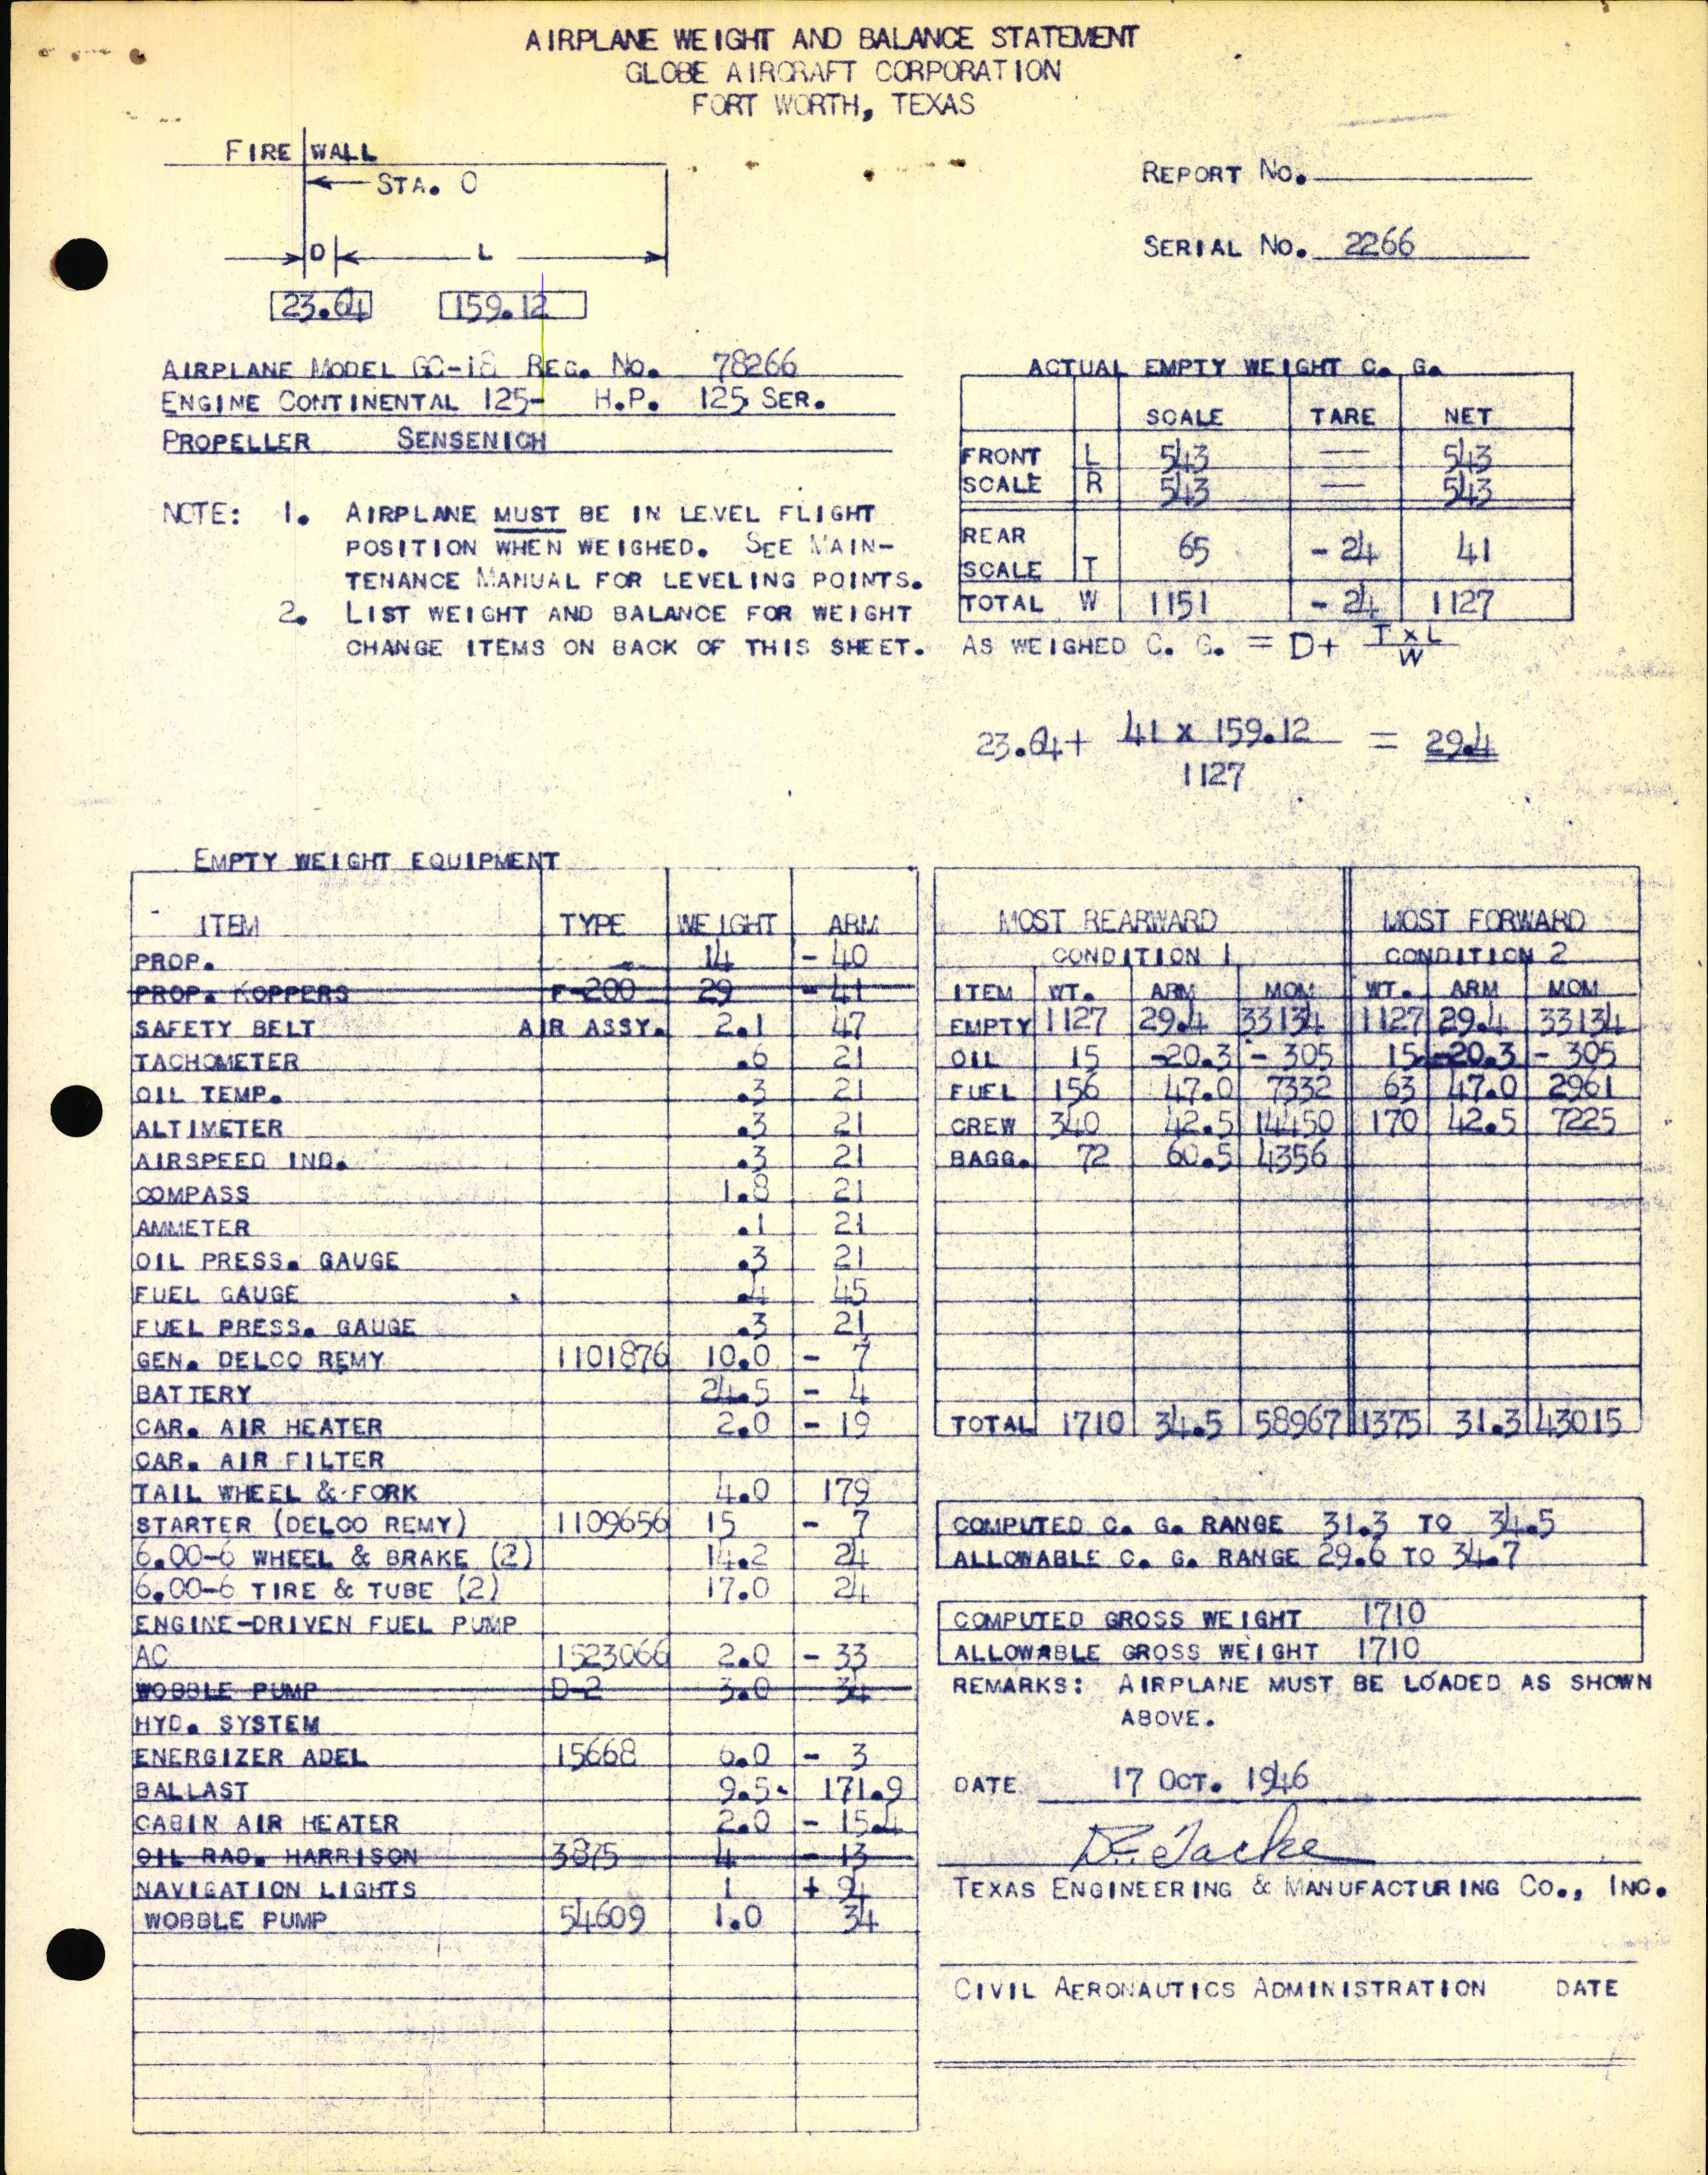 AIRPLANE WEIGHT AND BALANCE STATEMENT
GLOBE AIRCRAFT CORPORATION
FORT WORTH, TEXAS
FIRE WALL
STA. 0
D L
23.64 159.12
REPORT NO.
SERIAL NO. 2266
AIRPLANE MODEL GC-1B REG. NO. 78266
ENGINE CONTINENTAL 125- H.P. 125 SER.
PROPELLER SENSENICH
NOTE: 1. AIRPLANE MUST BE IN LEVEL FLIGHT
POSITION WHEN WEIGHED. SEE MAIN-
TENANCE MANUAL FOR LEVELING POINTS.
2. LIST WEIGHT AND BALANCE FOR WEIGHT
CHANGE ITEMS ON BACK OF THIS SHEET.
ACTUAL EMPTY WEIGHT C. G.
SCALE TARE NET
FRONT L 543 — 543
SCALE R 543 — 543
REAR
SCALE T 65 - 24 41
TOTAL W 1151 - 24 1127
AS WEIGHED C. G. = D+ T x L
W
23.64+ 41 x 159.12 = 29.4
1127
EMPTY WEIGHT EQUIPMENT
ITEM TYPE WEIGHT ARM
PROP. 14 - 40
PROP. KOPPERS F-200 29 - 41
SAFETY BELT AIR ASSY. 2.1 47
TACHOMETER .6 21
OIL TEMP. .3 21
ALTIMETER .3 21
AIRSPEED IND. .3 21
COMPASS 1.8 21
AMMETER .1 21
OIL PRESS. GAUGE .3 21
FUEL GAUGE .4 45
FUEL PRESS. GAUGE .3 21
GEN. DELCO REMY 1101876 10.0 - 7
BATTERY 24.5 - 4
CAR. AIR HEATER 2.0 - 19
CAR. AIR FILTER
TAIL WHEEL & FORK 4.0 179
STARTER (DELCO REMY) 1109656 15 - 7
6.00-6 WHEEL & BRAKE (2) 14.2 24
6.00-6 TIRE & TUBE (2) 17.0 24
ENGINE-DRIVEN FUEL PUMP
AC 1523066 2.0 - 33
WOBBLE PUMP D-2 3.0 34
HYD. SYSTEM
ENERGIZER ADEL 15668 6.0 - 3
BALLAST 9.5 171.9
CABIN AIR HEATER 2.0 - 15.4
OIL RAD. HARRISON 3875 4 - 13
NAVIGATION LIGHTS 1 +
WOBBLE PUMP 54609 1.0 34
MOST REARWARD MOST FORWARD
CONDITION 1 CONDITION 2
ITEM WT. ARM MOM WT. ARM MOM
EMPTY 1127 29.4 33134 1127 29.4 33134
OIL 15 -20.3 - 305 15 -20.3 - 305
FUEL 156 47.0 7332 63 47.0 2961
CREW 340 42.5 14450 170 42.5 7225
BAGG. 72 60.5 4356
TOTAL 1710 34.5 58967 1375 31.3 43015
COMPUTED C. G. RANGE 31.3 TO 34.5
ALLOWABLE C. G. RANGE 29.6 TO 34.7
COMPUTED GROSS WEIGHT 1710
ALLOWABLE GROSS WEIGHT 1710
REMARKS: AIRPLANE MUST BE LOADED AS SHOWN
ABOVE.
DATE 17 OCT. 1946
TEXAS ENGINEERING & MANUFACTURING CO., INC.
CIVIL AERONAUTICS ADMINISTRATION DATE